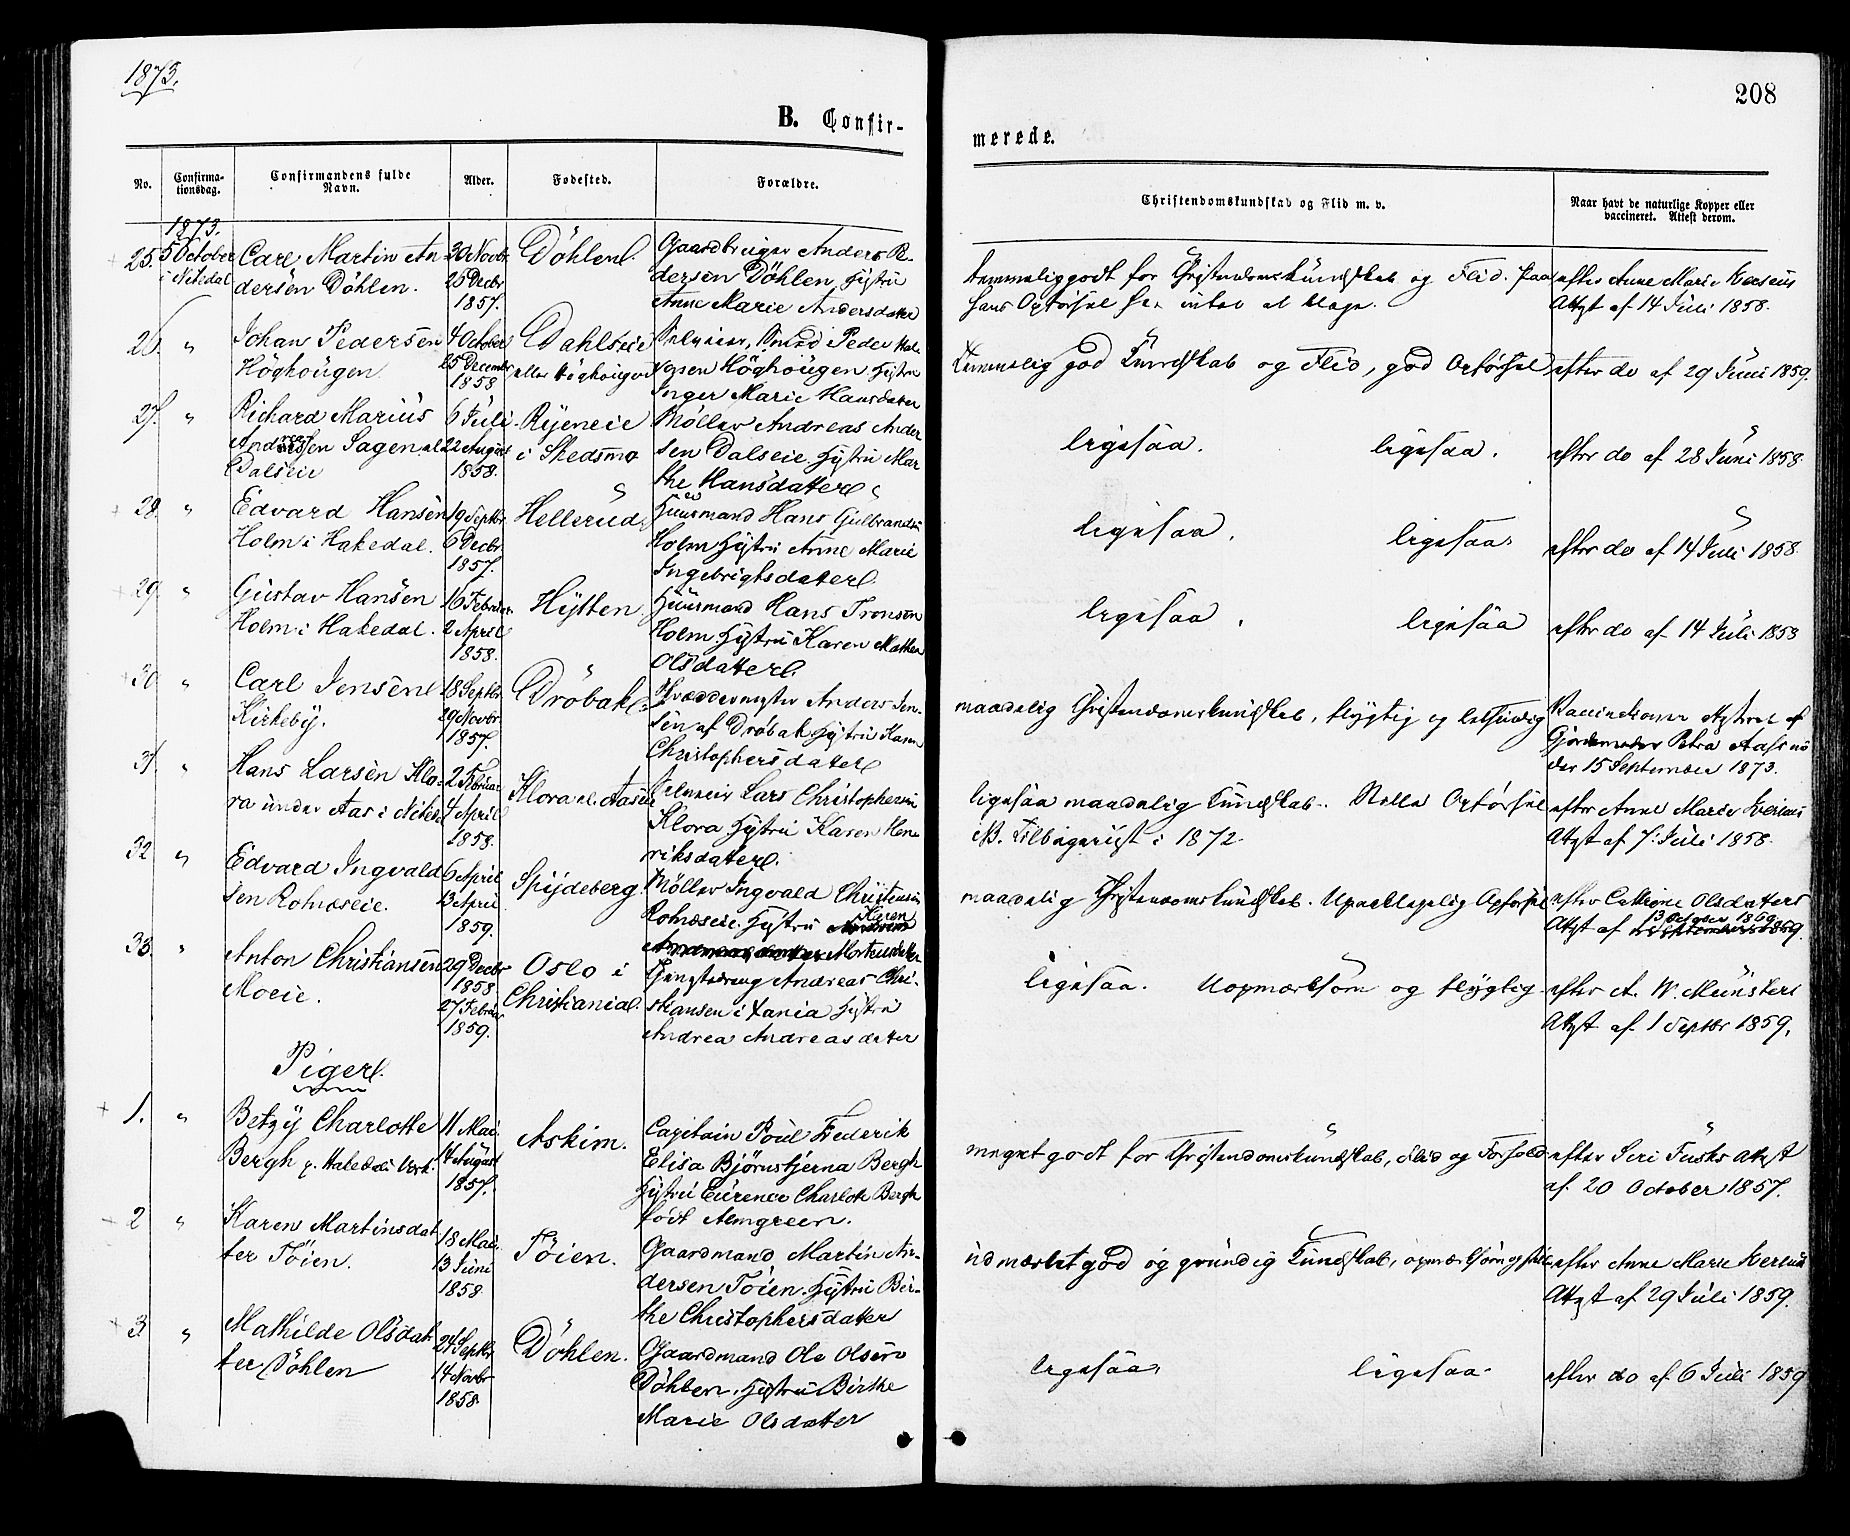 1873.
208
B. Confir-
merede.
No.
Confirma-
tionsdag.
Confirmandens fulde
Navn.
Alder.
Fødested.
Forældre.
Christendomskundskab og Flid m. v.
Naar havt de naturlige Kopper eller
vaccineret. Attest derom.
1873.
25. 5 October
i Nitedal
Carl Martin An
dersen Döhlen.
30 Novbr
26 Decbr
1857.
Döhlen.
Gaardbruger Anders
dersen Döhlen, Hustru
Anne Marie Andersdatter
temmelig godt for Christendomskundskab og Flid. Paa
hans Opförsel har intet at klage.
efter Anne Marie
Attest af 14 Juli 1858.
26. "
Johan Pedersen
Höghougen
4 October
25 December
1858
Dahlseie
eller Höghougen
Smed Peder
Höghougen Hustru
Inger Marie Hansdatter
temmelig god Kundskab og Flid, god Opförsel
efter do af 29 Juni 1859.
27. "
Richard Marius
Andresen Sagen al
Dalseie
6 Juli
22 August
1858.
Ryeneie
i Skedsmo
Möller Andreas Ander
sen Dalseie. Hustru Mar
the Hansdatter
ligesaa. ligesaa.
efter do af 28 Juni 1858.
28. "
Edvard Hansen
Holm i Hakedal.
19 Septbr
6 Decbr
1857.
Hellerud
Huusmand Hans Gulbrandsen
Holm Hustru Anne Marie
Ingebrigtsdatter.
ligesaa. ligesaa
efter do af 14 Juli 1858.
29. "
Gustav Hansen
Holm i Hakedal.
16 Februar
2 April
1858.
Hytten
Huusmand Hans Tronsen
Holm Hustru Karen Mathea
Olsdatter.
ligesaa. ligesaa
efter do af 14 Juli 1858
30 "
Carl Jensen
Kirkeby.
18 Septbr
29 Novbr
1857.
Dröbak
Skræddermester Anders Jen-
sen af Dröbak Hustru Karen
Christophersdatter
maadelig Christendomskundskab, flygtig og letsindig
Vaccinationen Attesteret af
Gjordemoder Petra
der 15 September 1873.
31. "
Hans Larsen Klo-
ra under Aas i Nites
2 Februar
4 April
1858.
Klora el. Aaseie
Lars Christophersen
Klora Hustru Karen Hen-
riksdatter.
ligesaa maadelig Kundskab. Stille Opförsel
NB. tilbagevist i 1872.
efter Anne Marie
Attest af 7. Juli 1858.
32 "
Edvard Ingvald
sen Romæseie.
6 April
13 April
1859.
Spydeberg
Möller Ingvald Christensen
Romæseie. Hustru Karen
Mortensdatter
maadelig Christendomskundskab. Upaaklagelig Opförsel
efter Cathrine Olsdatters
Attest af 13 October 1869
33. "
Anton Christiansen
Moeie.
29 Decbr
1858
27 Februar
1859.
Oslo i
Christiania.
Andreas Chri-
stiansen i Xania Hustru
Andrea Andreasdatter
ligesaa. Uopmærksom og flygtig.
efter A. W. Münsters
Attest af 1 Septbr 1859.
Piger.
1. "
Betzy Charlotte
Bergh p. Hakedals Verk.
11 Mai
14 August
1857.
Askim.
Capitain Poul Frederik
Elisa Björnstjerna Bergh
Hustru Laurence Charlotte Bergh
födt Almgreen.
meget godt for Christendomskundskab, Flid og Forhold
efter Siri Fusks Attest
af 20 October 1857.
2 "
Karen Martinsdat
ter Töien.
18 Mai
13 Juni
1858
Töien.
Gaardmand Martin An-
dersen Töien. Hustru Bir-
the Christophersdatter
udmærket god og grundig Kundskab, opmærksom og flittig
efter Anne Marie
Attest af 29 Juli 1859.
3 "
Mathilde Olsdat
ter Döhlen
24 Septbr
14 Novbr
1858
Döhlen.
Gaardmand Ole Olsen
Döhlen. Hustru Birthe
Marie Olsdatter
ligesaa. ligesaa.
efter do af 6 Juli 1859